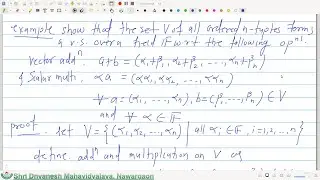 example show that the set V of all ordered n-tuples forms
a v.s. over a field F w.r.t the following opⁿˢ.
vector addⁿ. a+b = (α₁+β₁, α₂+β₂, ..., αₙ+βₙ)
& Scalar multi. αa = (αα₁, αα₂, ..., ααₙ)
∀ a = (α₁, ..., αₙ), b = (β₁, ..., βₙ) ∈ V
and ∀ α ∈ F
proof. Let V = {(α₁, α₂, ..., αₙ) | all αᵢ ∈ F, i=1,2,...,n}
define addⁿ and multiplication on V as
Shri Dnyanesh Mahavidyalaya, Nawargaon